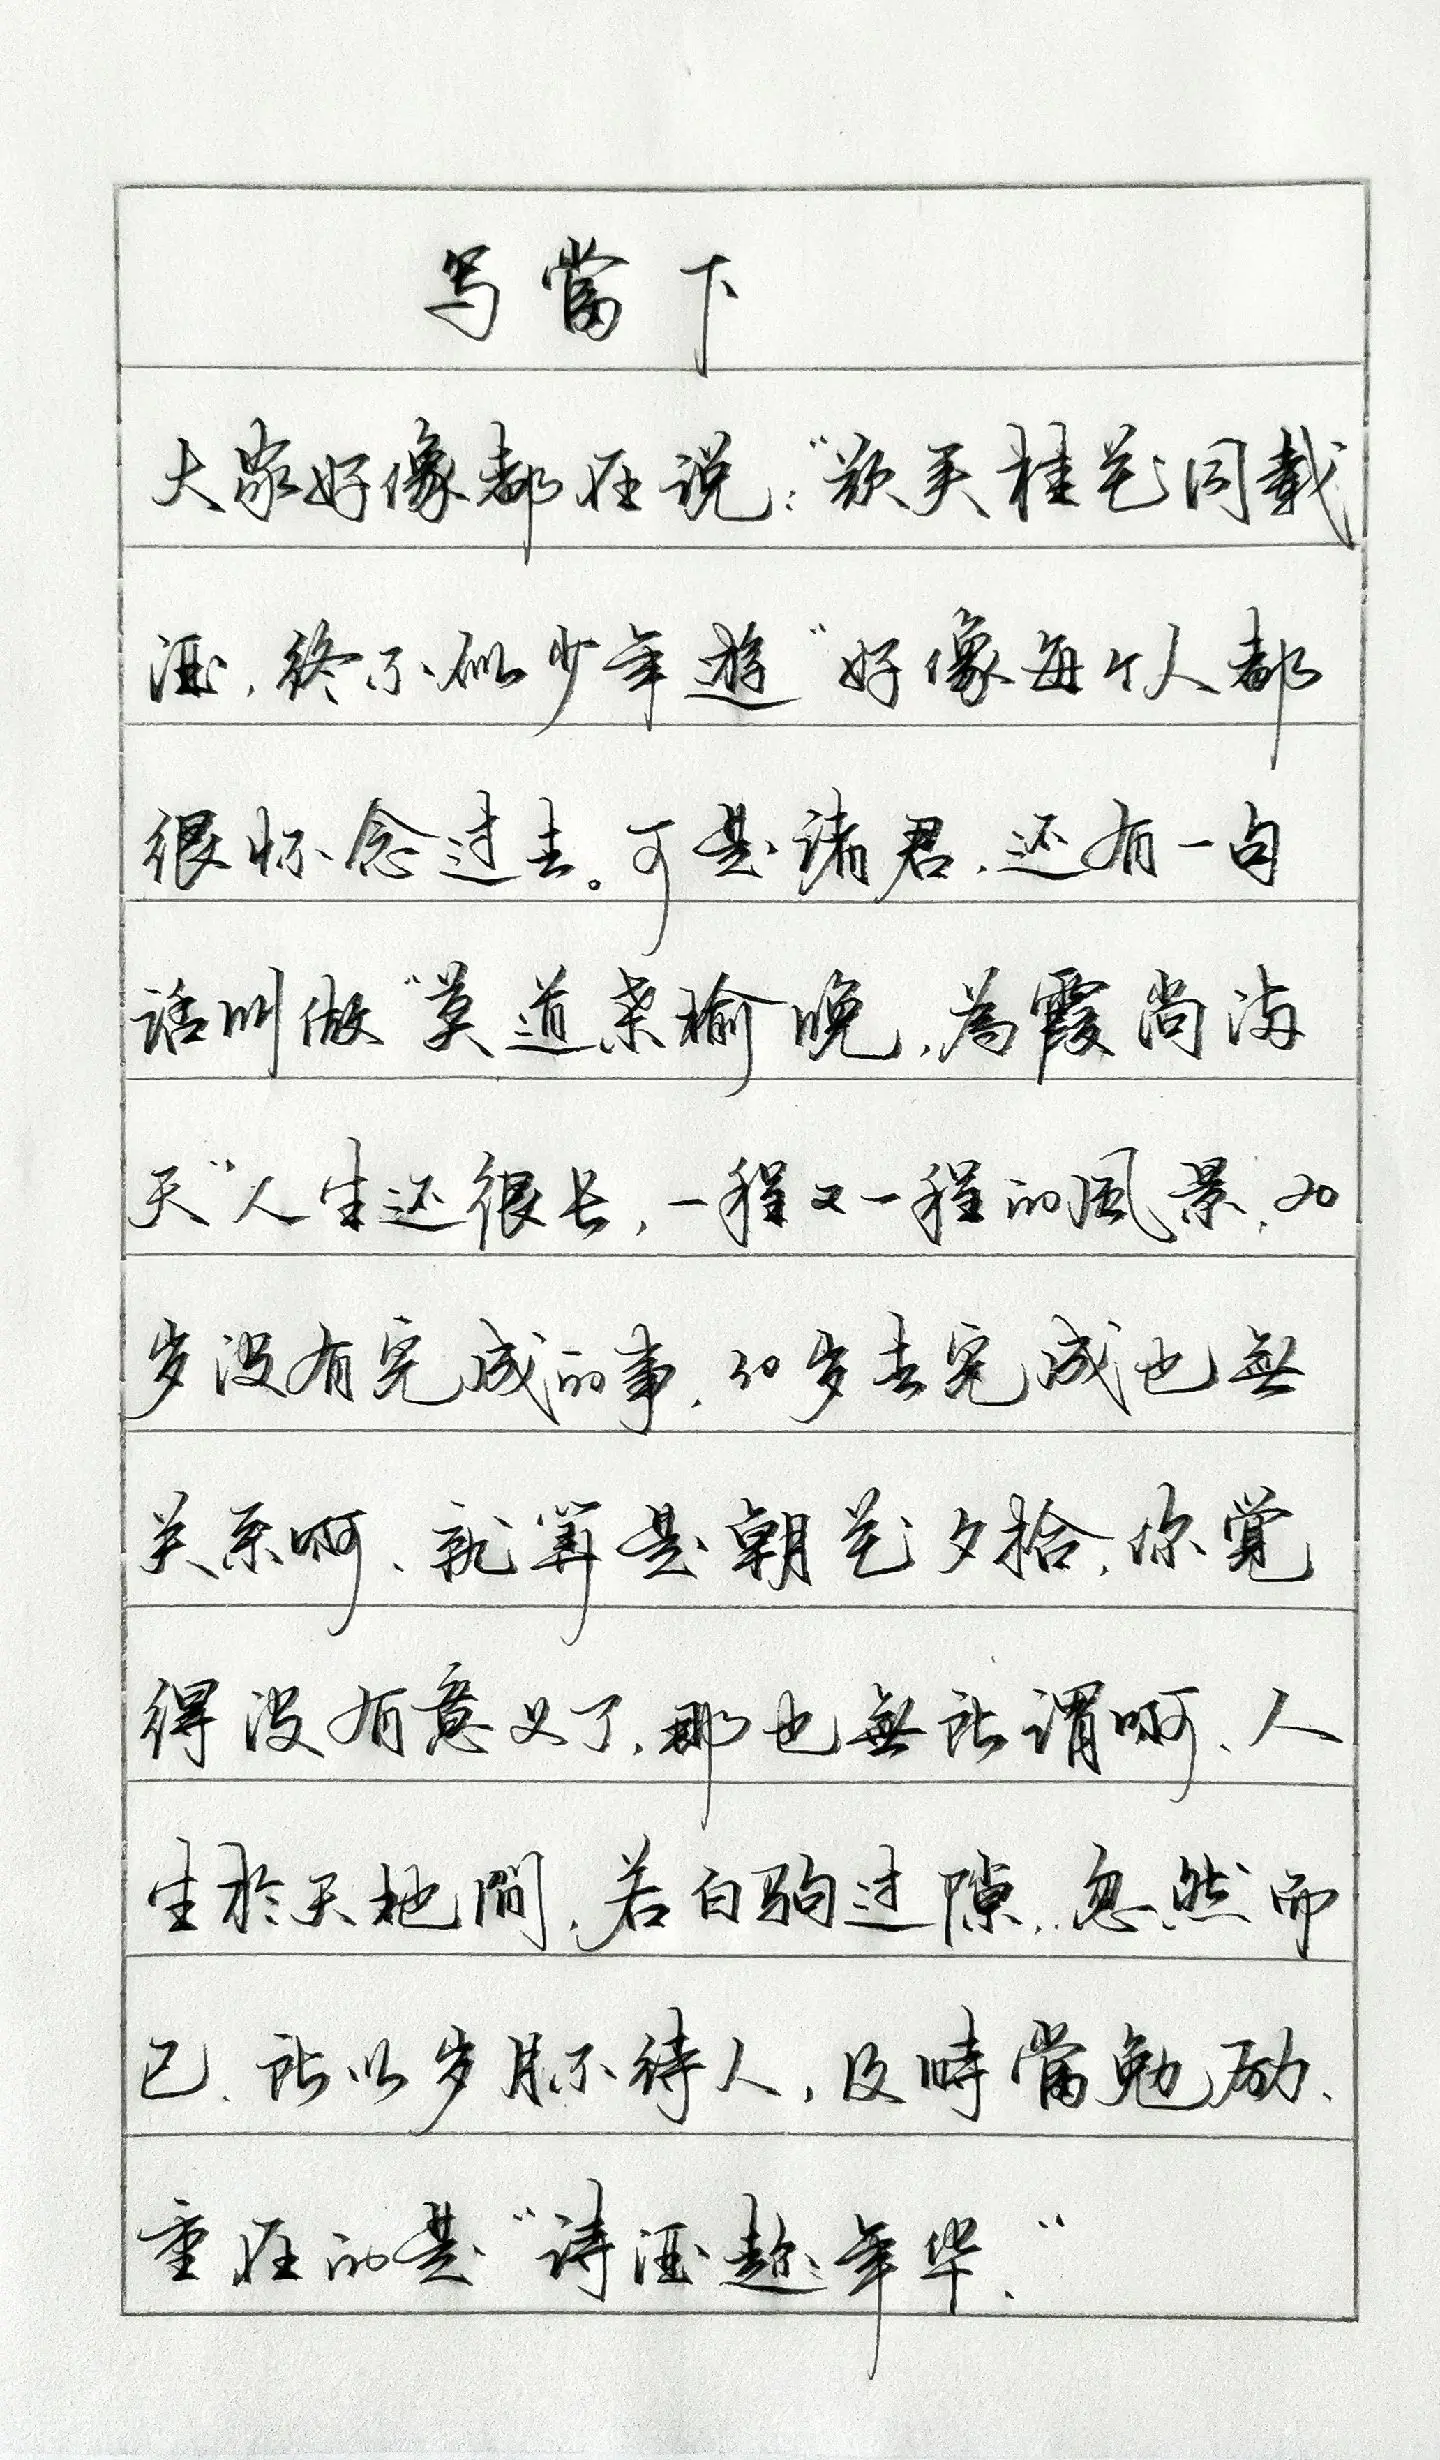 写當下
大家好像都在说：“欲买桂花同载
酒，终不似少年遊”好像每个人都
很怀念过去。可是诸君，还有一句
话叫做“莫道桑榆晚，為霞尚满
天”人生还很长，一程又一程的風景，20
岁没有完成的事，30岁去完成也無
关系啊、就算是朝花夕拾，你觉
得没有意义了，那也無所谓啊、人
生於天地間，若白驹过隙，忽然而
已、所以岁月不待人，及時當勉励、
重在的是“诗酒趁年华、”